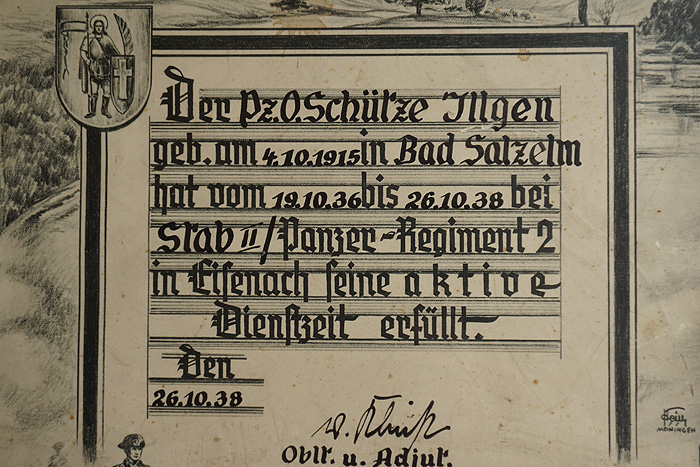 Der Pz.O.Schütze Illgen
geb. am 4.10.1915 in Bad Salzelm
hat vom 19.10.36 bis 26.10.38 bei
Stab II/Panzer-Regiment 2
in Eisenach seine aktive
Dienstzeit erfüllt.
Den
26.10.38
v. Kleist
Oblt. u. Adjut.
MEININGEN